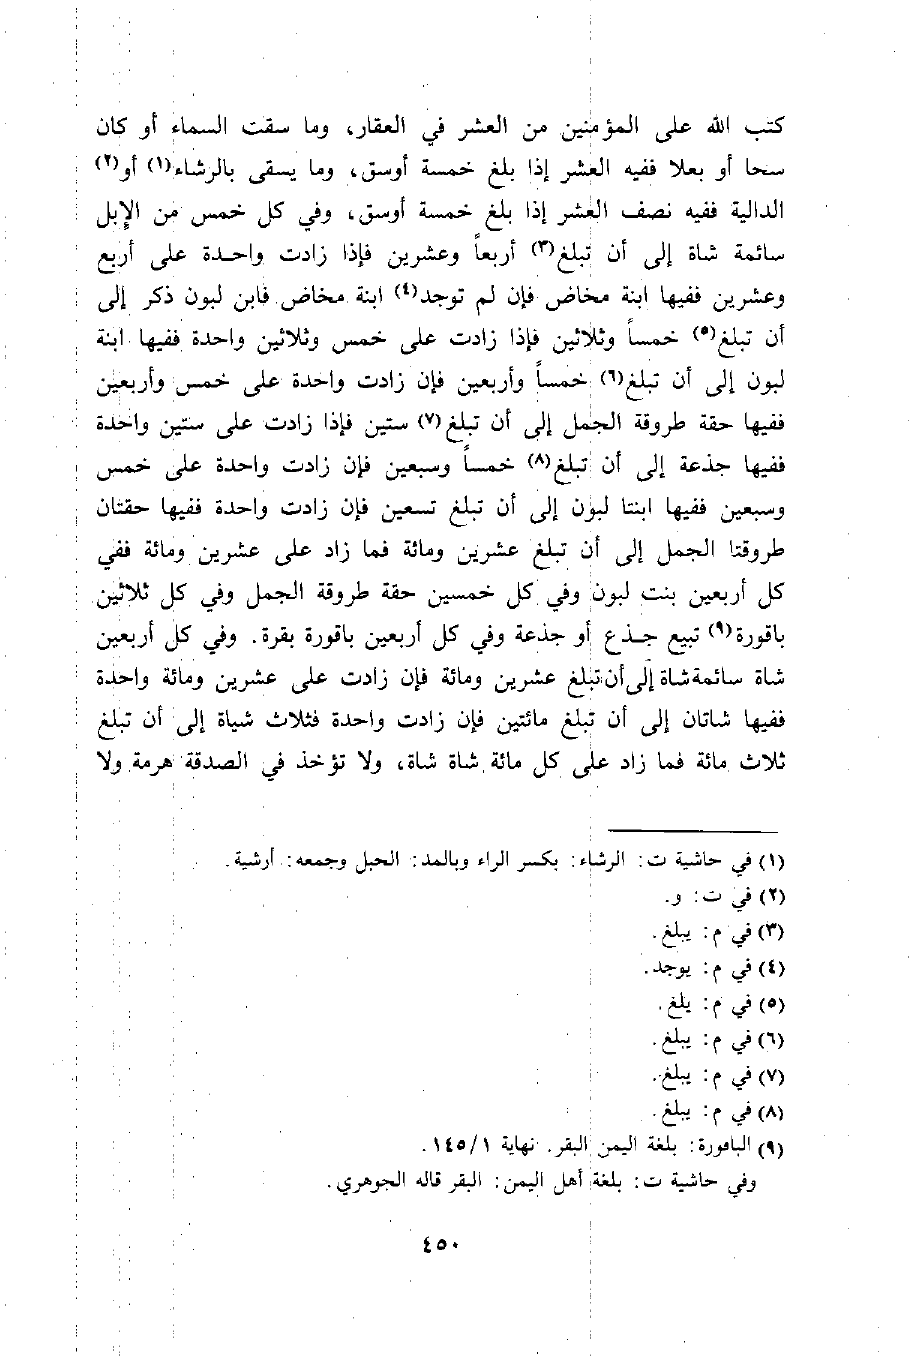 كتب الله على المؤمنين من العشر في العقار، وما سقت السماء أو كان
سحا أو بعلا ففيه العشر إذا بلغ خمسة أوسق، وما يسقى بالرشاء(١) أو(٢)
الدالية ففيه نصف العشر إذا بلغ خمسة أوسق، وفي كل خمس من الإبل
سائمة شاة إلى أن تبلغ(٣) أربعاً وعشرين فإذا زادت واحدة على أربع
وعشرين ففيها ابنة مخاض فإن لم توجد(٤) ابنة مخاض فابن لبون ذكر إلى
أن تبلغ(٥) خمساً وثلاثين فإذا زادت على خمس وثلاثين واحدة ففيها ابنة
لبون إلى أن تبلغ(٦) خمساً وأربعين فإن زادت واحدة على خمس وأربعين
ففيها حقة طروقة الجمل إلى أن تبلغ(٧) ستين فإذا زادت على ستين واحدة
ففيها جذعة إلى أن تبلغ(٨) خمساً وسبعين فإن زادت واحدة على خمس
وسبعين ففيها ابنتا لبون إلى أن تبلغ تسعين فإن زادت واحدة ففيها حقتان
طروقتا الجمل إلى أن تبلغ عشرين ومائة فما زاد على عشرين ومائة ففي
كل أربعين بنت لبون وفي كل خمسين حقة طروقة الجمل وفي كل ثلاثين
باقورة(٩) تبيع جذع أو جذعة وفي كل أربعين باقورة بقرة. وفي كل أربعين
شاة سائمة شاة إلى أن تبلغ عشرين ومائة فإن زادت على عشرين ومائة واحدة
ففيها شاتان إلى أن تبلغ مائتين فإن زادت واحدة فثلاث شياة إلى أن تبلغ
ثلاث مائة فما زاد على كل مائة شاة شاة، ولا تؤخذ في الصدقة هرمة ولا
(١) في حاشية ت: الرشاء: بكسر الراء وبالمد: الحبل وجمعه: أرشية.
(٢) في ت: و.
(٣) في م: يبلغ.
(٤) في م: يوجد.
(٥) في م: يلغ.
(٦) في م: يبلغ.
(٧) في م: يبلغ.
(٨) في م: يبلغ.
(٩) الباقورة: بلغة اليمن البقر. نهاية ١٤٥/١.
وفي حاشية ت: بلغة أهل اليمن: البقر قاله الجوهري.
٤٥٠